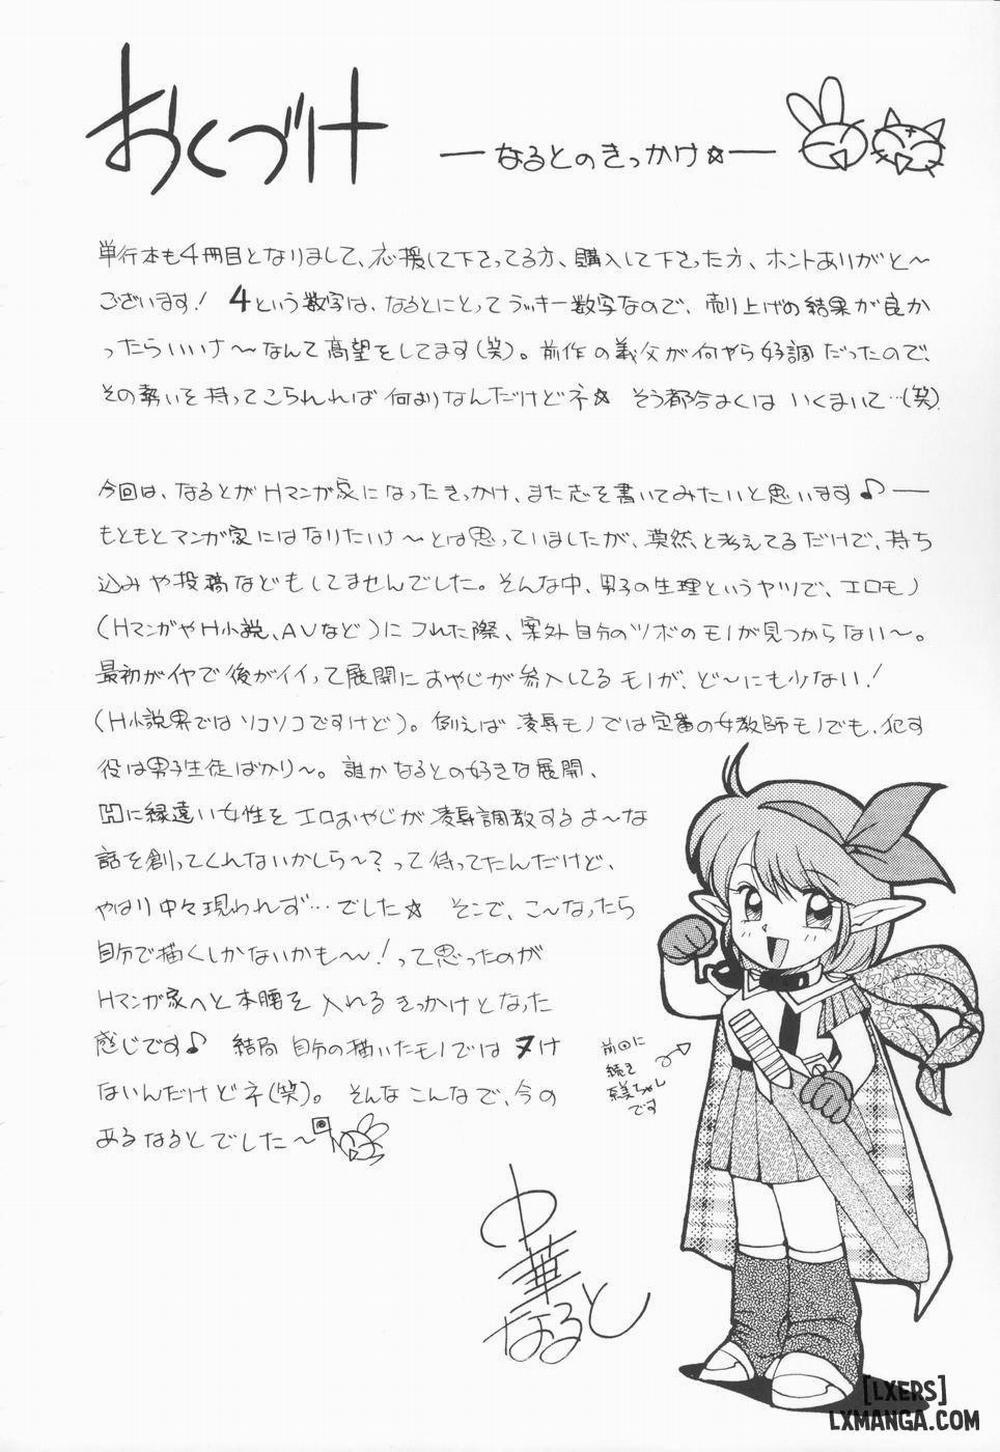 おくづけ
―なるとのきっかけ☆―
単行本も4冊目となりまして、応援して下さってる方、購入して下さった方、ホントありがと〜
ございます! 4という数字は、なるとにとってラッキー数字なので、売り上げの結果が良か
ったらいいナ〜なんて高望をしてます(笑)。前作の義父が何やら好調だったので、
その勢いを持ってこられれば何よりなんだけどネ☆ そう都合よくは いくまいて…(笑)
今回は、なるとがHマンガ家になったきっかけ、また志を書いてみたいと思います♪―
もともとマンガ家にはなりたいナ〜とは思っていましたが、漠然と考えてるだけで、持ち
込みや投稿などもしてませんでした。そんな中、男子の生理というヤツで、エロモノ
(HマンガやH小説、AVなど)にフれた際、案外自分のツボのモノが見つからない〜。
最初がイヤで後がイイって展開におやじが参入してるモノが、ど〜にも少ない!
(H小説界ではソコソコですけど)。例えば 凌辱モノでは定番の女教師モノでも、犯す
役は男子生徒ばかり〜。誰かなるとの好きな展開、
Hに縁遠い女性をエロおやじが凌辱調教するよ〜な
話を創ってくんないかしら〜?って待ってたんだけど、
やはり中々現われず…でした☆ そこで、こ〜なったら
自分で描くしかないかも〜!って思ったのが
Hマンガ家へと本腰を入れるきっかけとなった
感じです♪ 結局 自分の描いたモノではヌけ
ないんだけどネ(笑)。そんなこんなで、今の
あるなるとでした〜
前回に
続き
美ちゃん
です
中華
なると
[LXERS]
LXMANGA.COM